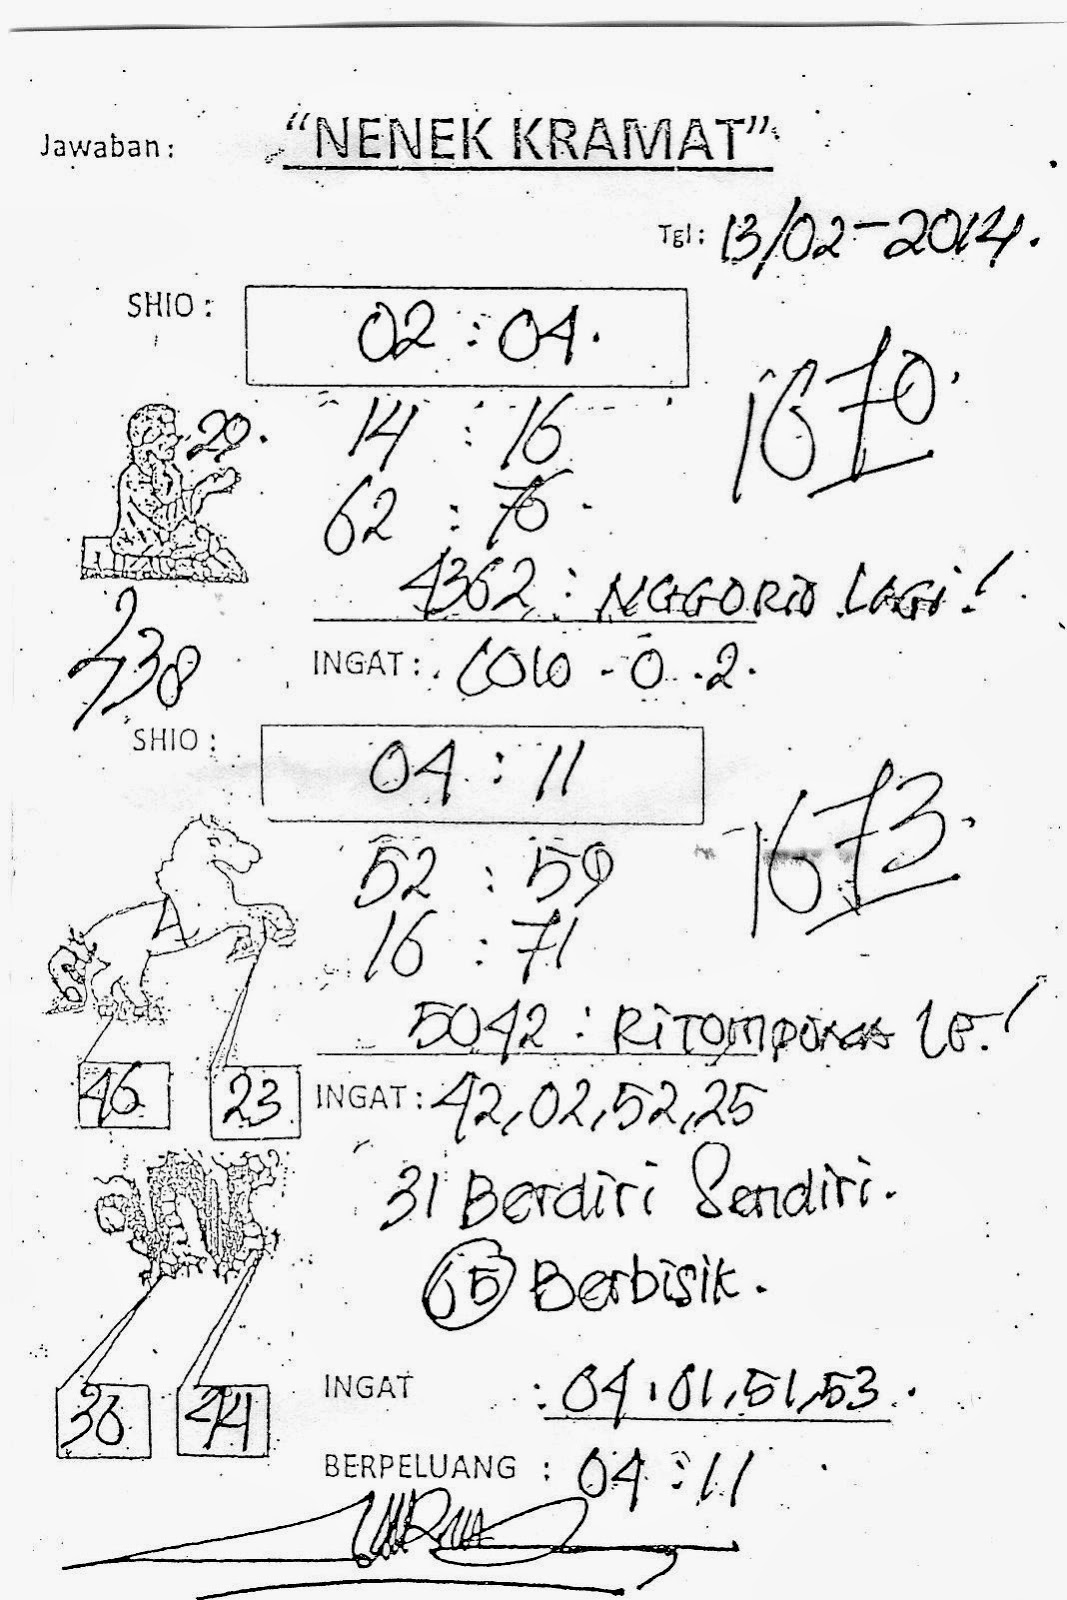 Jawaban: "NENEK KRAMAT"
Tgl: 13/02-2014.
SHIO: 02 : 04.
1670
14 : 16
20.
62 : 76.
4362 : LAGI!
438
INGAT: COLO - 0 . 2.
SHIO: 04 : 11
1673.
52 : 59
16 : 71
5042 :
46 23 INGAT: 42,02,52,25
31 Berdiri Sendiri.
65 Berbisik.
INGAT : 04.01,51,53.
36 44
BERPELUANG : 04 : 11